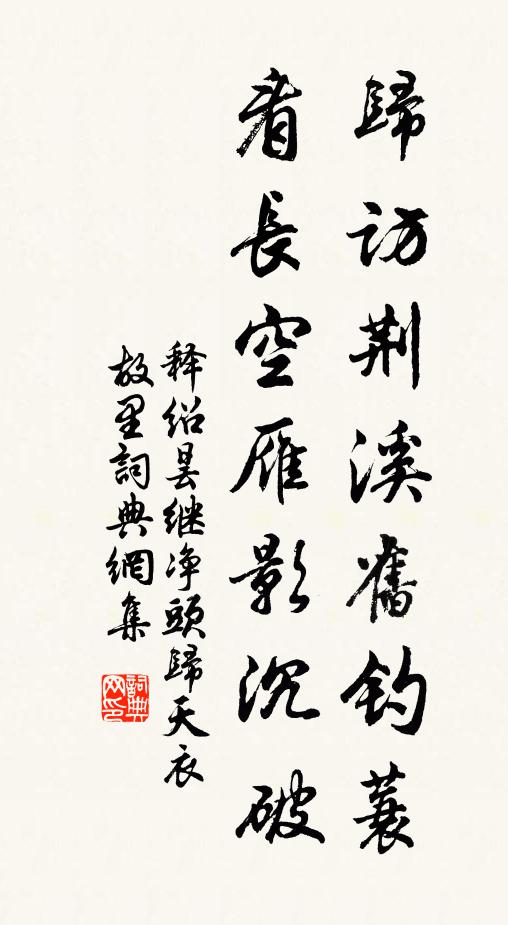 歸訪荆溪舊釣蓑
看長空雁影沉破
释绍昙继净頭歸天衣
故里詞典網集
詞典网印